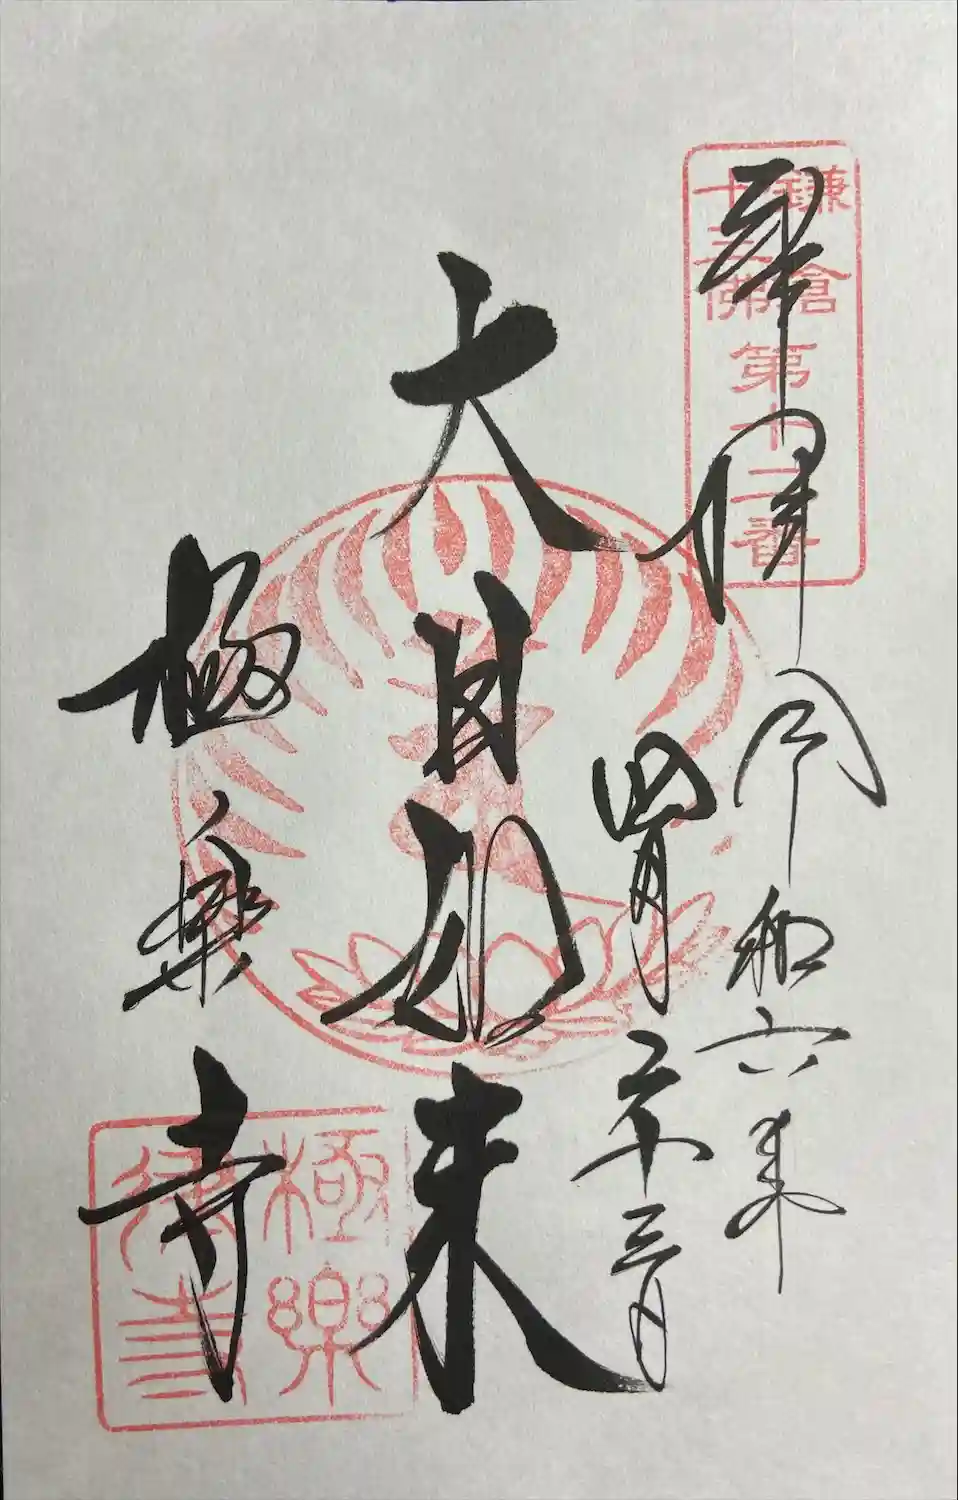 鎌倉
十三佛
第十二番
奉拝 令和六年
四月二十三日
大日如来
極楽寺
極樂
律寺